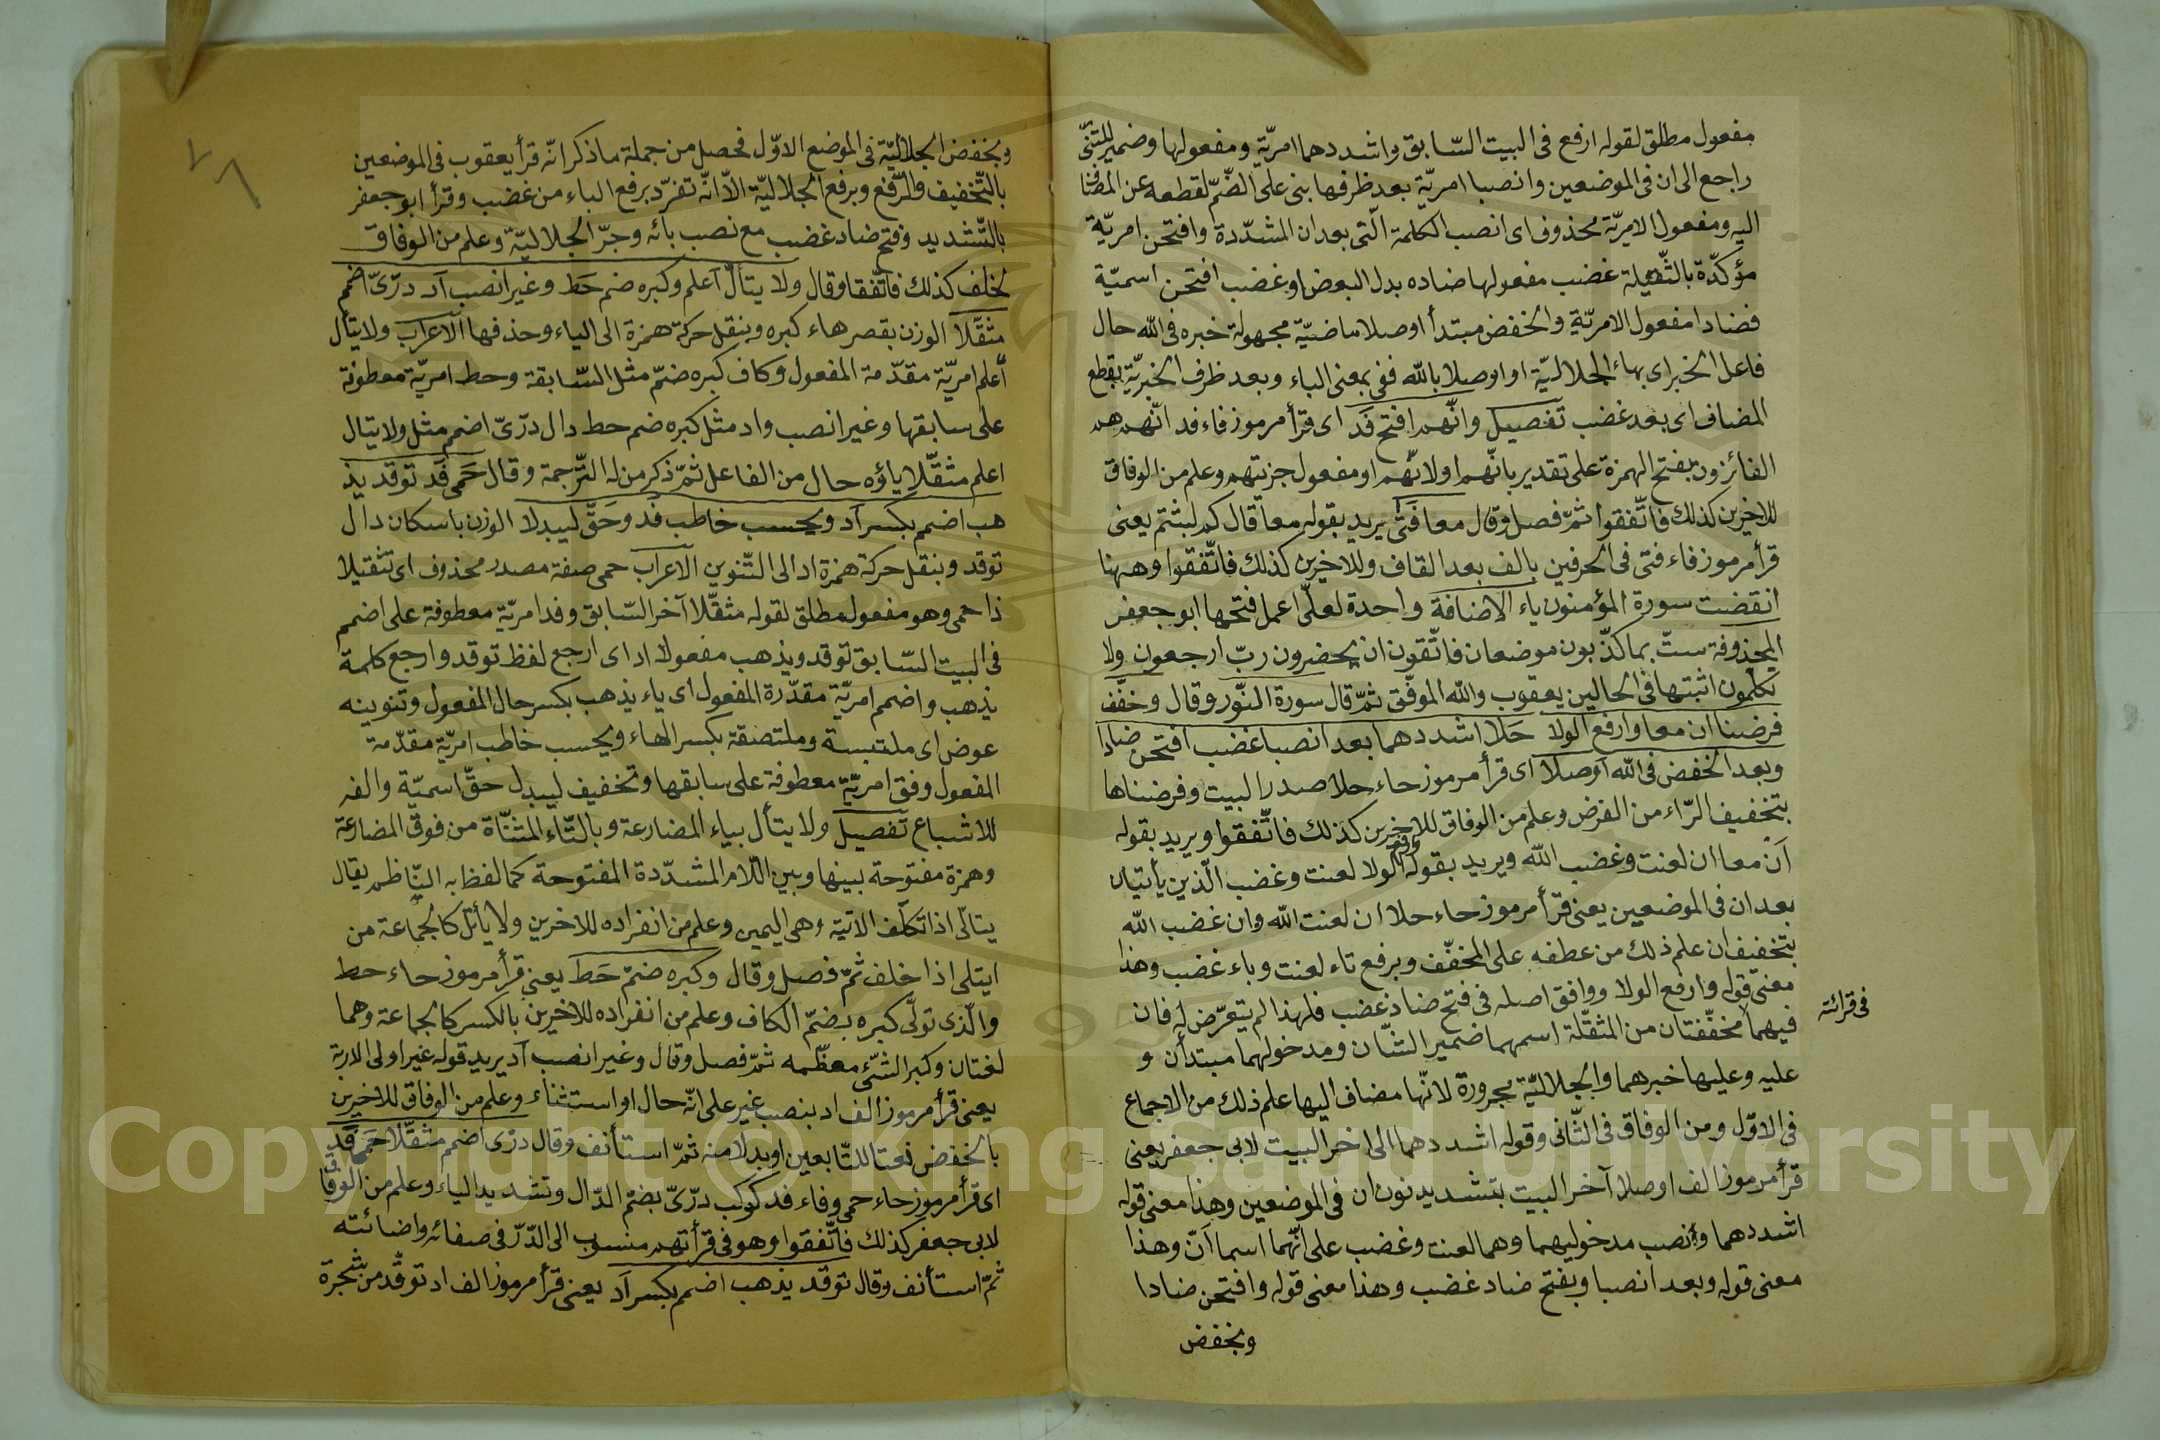 مفعول مطلق لقوله ارفع فى البيت السّابق واشددهما امريّة ومفعولها وضمير المثنّى
راجع الى ان فى الموضعين وانصبا امريّة بعد ظرفها بنى على الضّمّ لقطعه عن المضاف
اليه ومفعول الامريّة محذوف اى انصب الكلمة الّتى بعد ان المشدّدة وافتحن امريّة
مؤكّدة بالثّقيلة غضب مفعولها ضاده بدل البعض او غضب افتحن اسميّة
فضادا مفعول الامريّة والخفض مبتدأ اوصلا ماضيّة مجهولة خبره فى الله حال
فاعل الخبر اى بهاء الجلاليّة او اوصلا بالله ففى بمعنى الباء وبعد ظرف الخبريّة بقطع
المضاف اى بعد غضب تفصيل وانّهم افتح فد اى قرأ مرموز فاء فد انّهم هم
الفائزون بفتح الهمزة على تقدير بانّهم او لانّهم او مفعول جزيتهم وعلم من الوفاق
للاخرين كذلك فاتّفقوا ثمّ فصل وقال معا فتى يريد بقوله معا قال كم لبثتم يعنى
قرأ مرموز فاء فتى فى الحرفين بالف بعد القاف وللاخرين كذلك فاتّفقوا وههنا
انقضت سورة المؤمنون ياء الاضافة واحدة لعلّى اعمل فتحها ابو جعفر
المحذوفة ستّ بما كذّبون موضعان فاتّقون ان يحضرون ربّ ارجعون ولا
تكلّمون اثبتها فى الحالين يعقوب والله الموفّق ثمّ قال سورة النّور وقال وخفّف
فرضنا ان معا وارفع الولا حلا اشددهما بعد انصبا غضب افتحن ضادا
وبعد الخفض فى الله اوصلا اى قرأ مرموز حاء حلا صدر البيت وفرضناها
بتخفيف الرّاء من الفرض وعلم من الوفاق للاخرين كذلك فاتّفقوا ويريد بقوله
ان معا ان لعنت وغضب الله ويريد بقوله الولا لعنت وغضب الّذين يأتيان
بعد ان فى الموضعين يعنى قرأ مرموز حاء حلا ان لعنت الله وان غضب الله
بتخفيف ان علم ذلك من عطفه على المخفّف وبرفع تاء لعنت وباء غضب وهذا
معنى قوله وارفع الولا ووافق اصله فى فتح ضاد غضب فلهذا لم يتعرّض له فان
فى قرائته
فيهما مخفّفتان من المثقّلة اسمهما ضمير الشّان ومدخولهما مبتدأن و
عليه وعليها خبرهما والجلاليّة مجرورة لانّها مضاف اليها علم ذلك من الاجماع
فى الاوّل ومن الوفاق فى الثّانى وقوله اشددهما الى اخر البيت لابى جعفر يعنى
قرأ مرموز الف اوصلا آخر البيت بتشديد نون ان فى الموضعين وهذا معنى قوله
اشددهما وانصب مدخوليهما وهما لعنت وغضب على انّهما اسما انّ وهذا
معنى قوله وبعد انصبا وبفتح ضاد غضب وهذا معنى قوله وافتحن ضادا
وبخفض
وبخفض الجلاليّة فى الموضع الاوّل فحصل من جملة ما ذكر انّه قرأ يعقوب فى الموضعين
بالتّخفيف والرّفع وبرفع الجلاليّة الاّ انّه تفرّد برفع الباء من غضب وقرأ ابو جعفر
بالتّشديد وفتح ضاد غضب مع نصب بائه وجرّ الجلاليّة وعلم من الوفاق
لخلف كذلك فاتّفقا وقال ولا يتألّ اعلم وكبره ضم حط وغير انصب آد درّىّ اضمم
مثقّلا الوزن بقصر هاء كبره وبنقل حركة همزة الى الياء وحذفها الاعراب ولا يتأل
اعلم امريّة مقدّمة المفعول وكاف كبره ضمّ مثل السّابقة وحط امريّة معطوفة
على سابقها وغير انصب واد مثل كبره ضم حط دال درّىّ اضمم مثل ولا يتال
اعلم مثقّلا ياؤه حال من الفاعل ثمّ ذكر من له التّرجمة وقال حمى فد توقد يذ
هب اضمم بكسر آد ويحسب خاطب فد وحقّ ليبدلا الوزن باسكان دال
توقد وبنقل حركة همزة اد الى التّنوين الاعراب حمى صفة مصدر محذوف اى تثقيلا
ذا حمى وهو مفعول مطلق لقوله مثقّلا آخر السّابق وفد امريّة معطوفة على اضمم
فى البيت السّابق توقد ويذهب مفعولا اد اى ارجع لفظ توقد وارجع كلمة
يذهب واضمم امريّة مقدّرة المفعول اى ياء يذهب بكسر حال المفعول وتنوينه
عوض اى ملتبسة وملتصقة بكسر الهاء ويحسب خاطب امريّة مقدّمة
المفعول وفق امريّة معطوفة على سابقها وتخفيف ليبدل حقّ اسميّة والفه
للاشباع تفصيل ولا يتأل بياء المضارعة وبالتّاء المثنّاة من فوق المضارعة
وهمزة مفتوحة بينها وبين اللّام المشدّدة المفتوحة كما لفظ به النّاظم يقال
يتالّى اذا تكلّف الاتية وهى اليمين وعلم من انفراده للاخرين ولا يأتل كالجماعة من
ايتلى اذا خلف ثمّ فصل وقال وكبره ضمّ حط يعنى قرأ مرموز حاء حط
والّذى تولّى كبره بضمّ الكاف وعلم من انفراده للاخرين بالكسر كالجماعة وهما
لغتان وكبر الشّئ معظّمه ثمّ فصل وقال وغير انصب آد يريد قوله غير اولى الاربة
يعنى قرأ مرموز الف اد بنصب غير على انّه حال او استثناء وعلم من الوفاق للاخرين
بالخفض نعتا للتّابعين او بدلا منه ثمّ استأنف وقال درّى اضمم مثقّلا حمى فد
اى قرأ مرموز حاء حمى وفاء فد كوكب درّىّ بضمّ الدّال وتشديد الياء وعلم من الوفاق
لابى جعفر كذلك فاتّفقوا وهو فى قرأتهم منسوب الى الدّرّ فى صفائه واضائته
ثمّ استأنف وقال توقد يذهب اضمم بكسر آد يعنى قرأ مرموز الف اد توقّد من شّجرة
Copyright © King Saud University